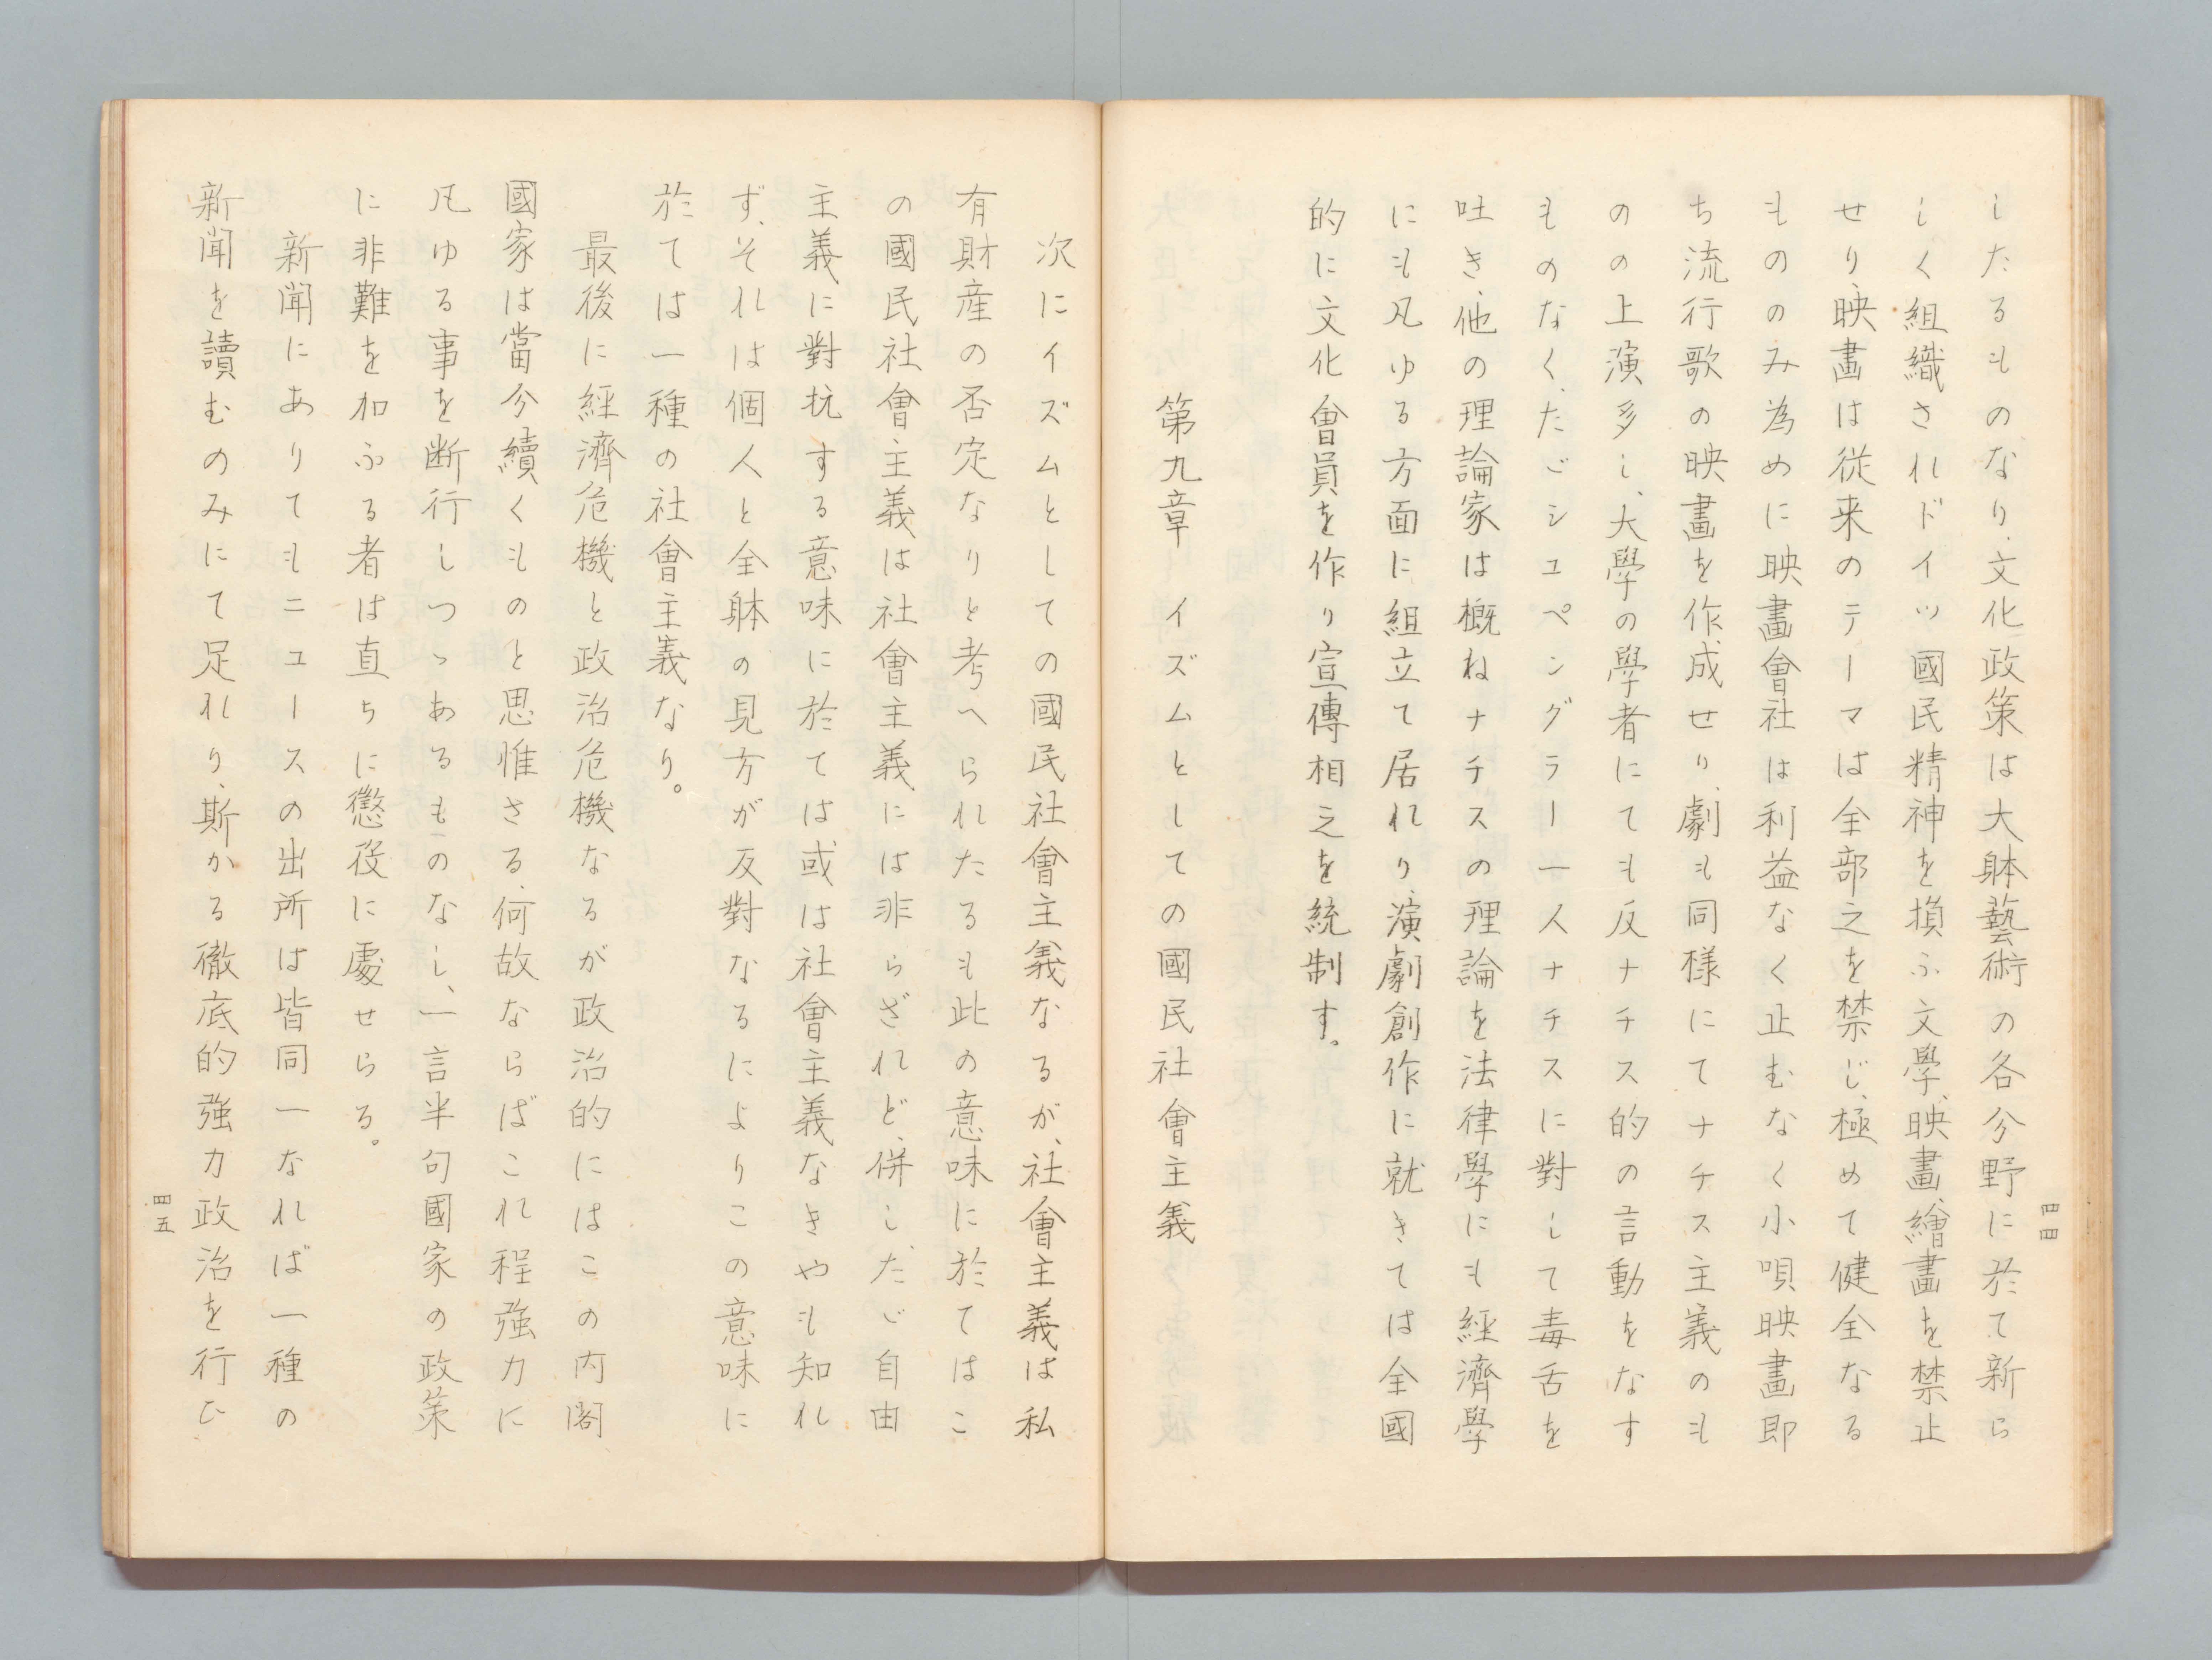 したるものなり、文化政策は大躰藝術の各分野に於て新ら
しく組織されドイツ國民精神を損ふ文學、映畫、繪畫を禁止
せり、映畫は従来のテーマは全部之を禁じ、極めて健全なる
もののみ為めに映畫會社は利益なく止むなく小唄映畫即
ち流行歌の映畫を作成せり、劇も同様にてナチス主義のも
のの上演多し、大學の學者にても反ナチス的の言動をなす
ものなく、たゞシュペングラー一人ナチスに對して毒舌を
吐き、他の理論家は概ねナチスの理論を法律學にも經濟學
にも凡ゆる方面に組立て居れり、演劇創作に就きては全國
的に文化會員を作り宣傳相之を統制す。
第九章　イズムとしての國民社會主義
四四
次にイズムとしての國民社會主義なるが、社會主義は私
有財産の否定なりと考へられたるも此の意味に於てはこ
の國民社會主義は社會主義には非らざれど、併し、たゞ自由
主義に對抗する意味に於ては或は社會主義なきやも知れ
ず、それは個人と全躰の見方が反對なるによりこの意味に
於ては一種の社會主義なり。
最後に經濟危機と政治危機なるが政治的にはこの内閣
國家は當分續くものと思惟さる、何故ならばこれ程強力に
凡ゆる事を断行しつゝあるものなし、一言半句國家の政策
に非難を加ふる者は直ちに懲役に處せらる。
新聞にありてもニュースの出所は皆同一なれば一種の
新聞を讀むのみにて足れり、斯かる徹底的強力政治を行ひ
四五